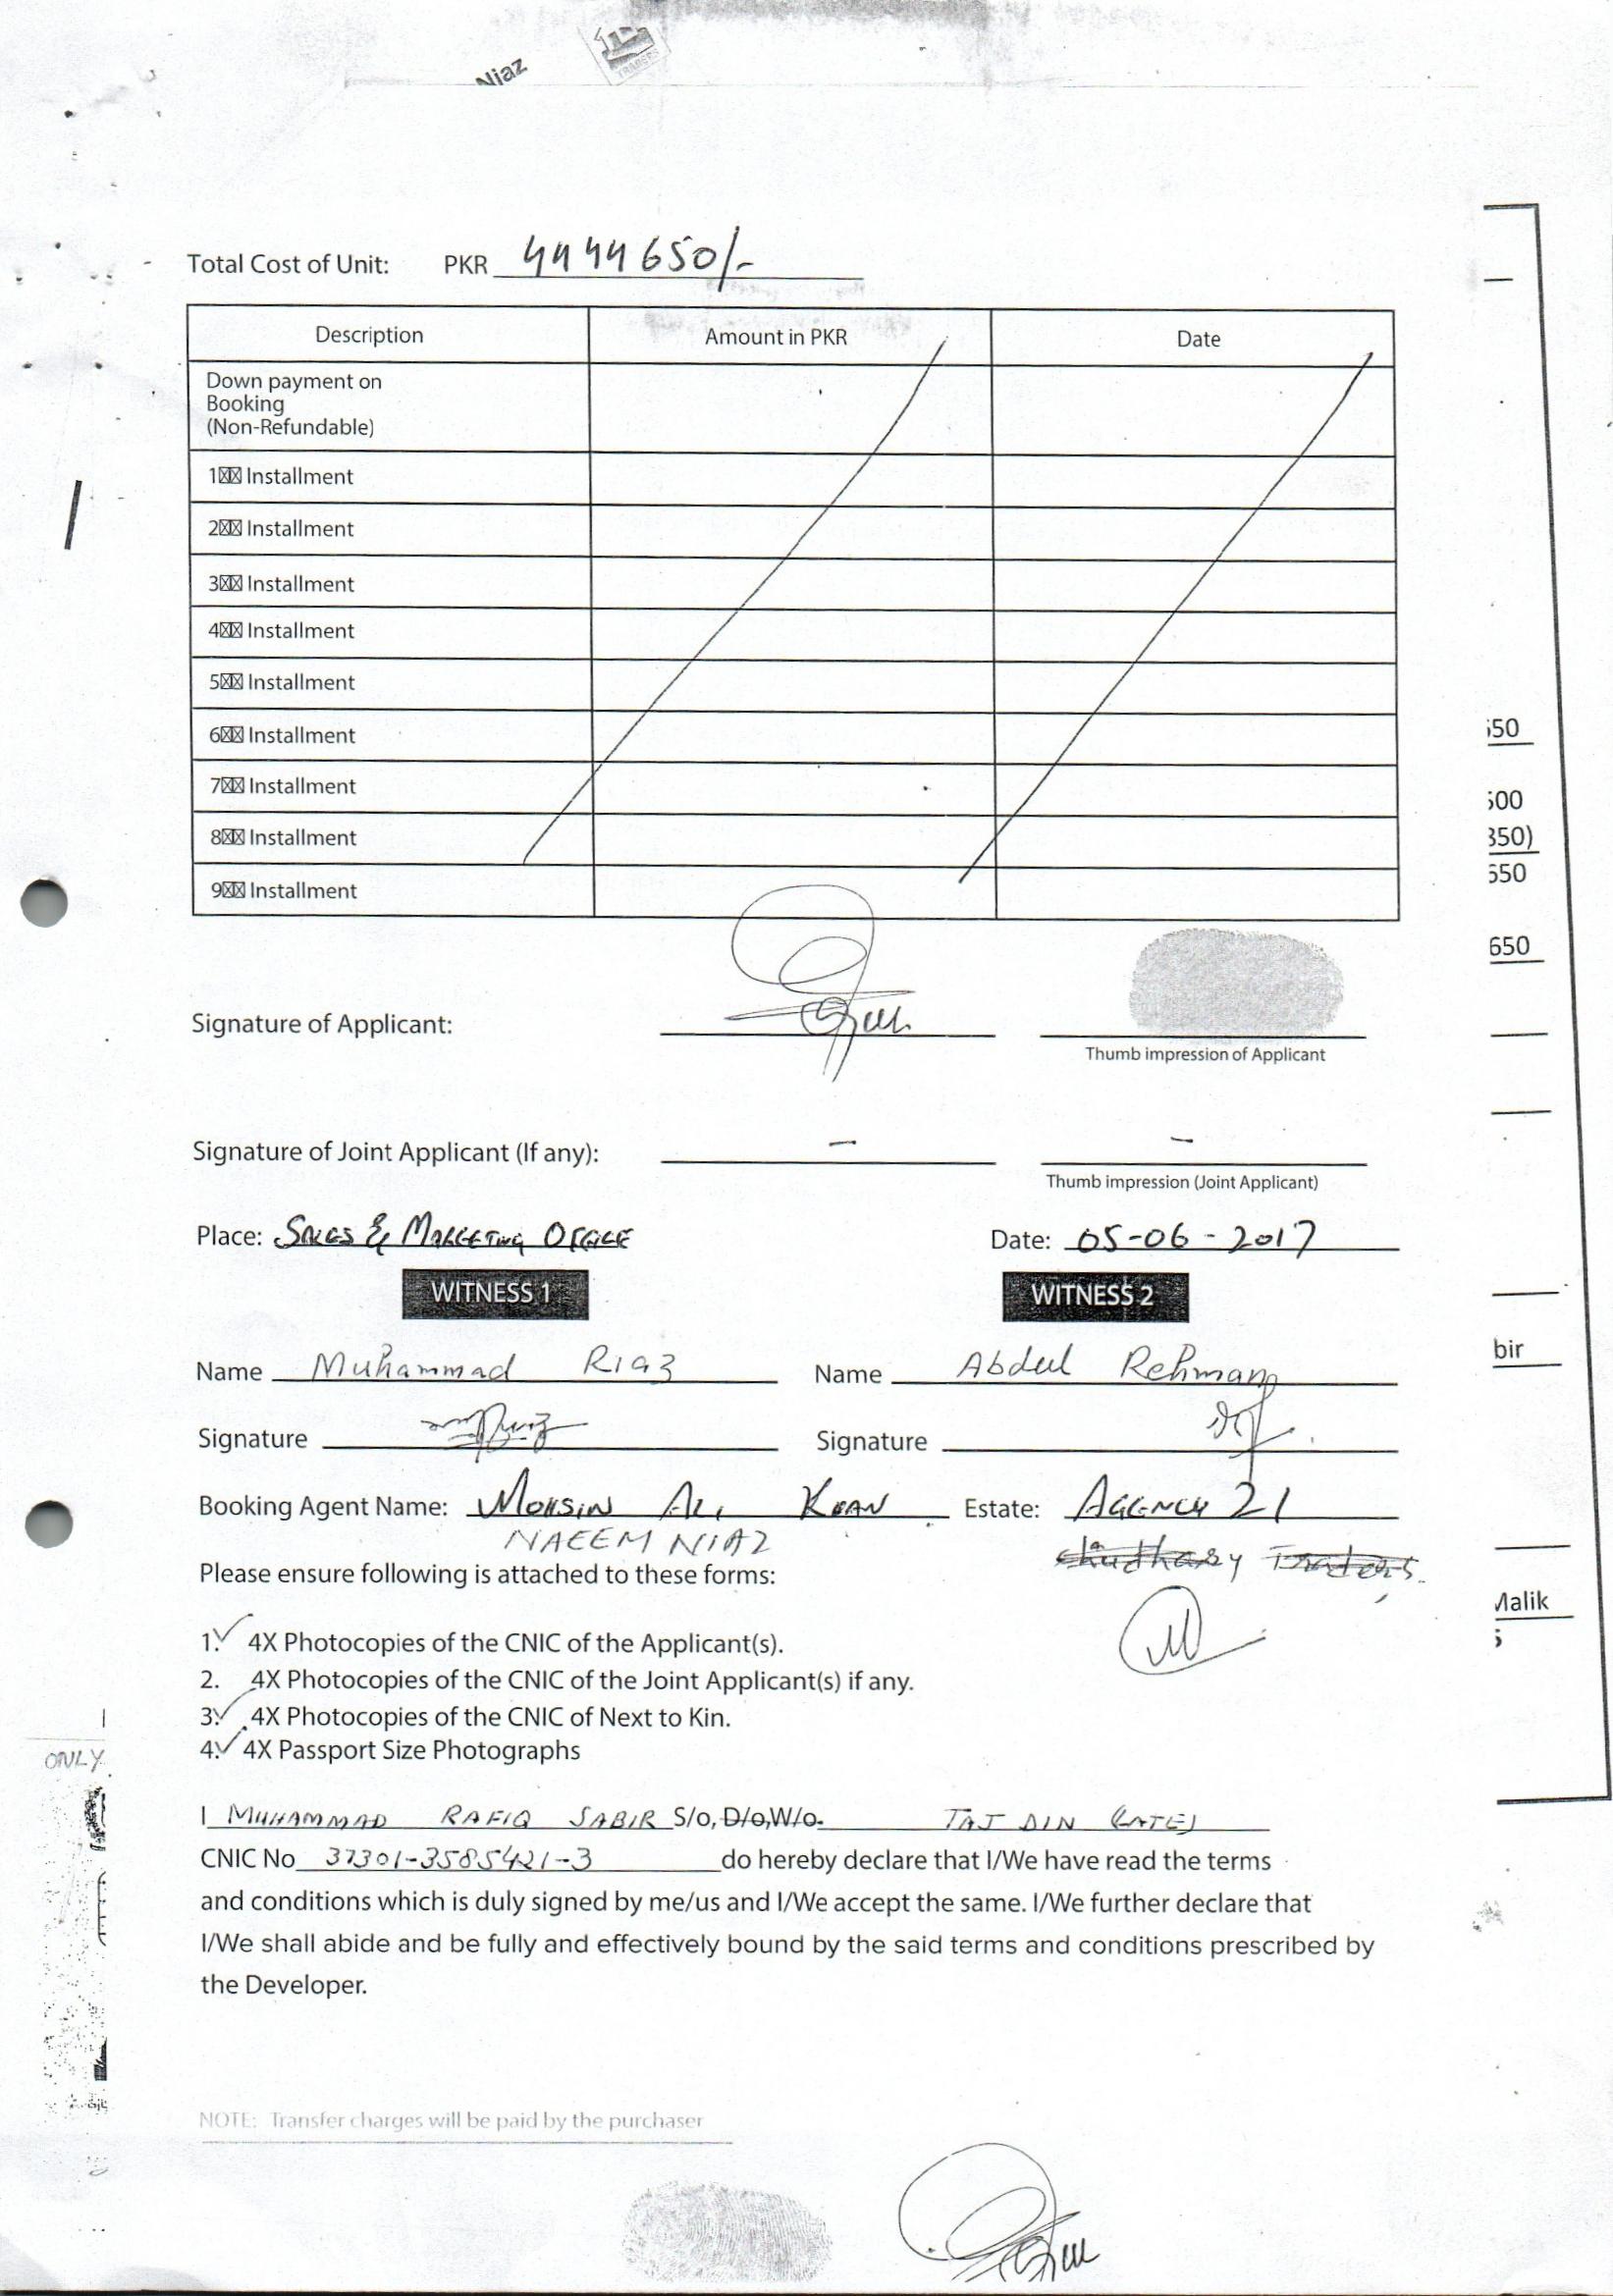 Niaz
TRANSFER
Total Cost of Unit: PKR 4444650/-
Description Amount in PKR Date
Down payment on
Booking
(Non-Refundable)
1 Installment
2 Installment
3 Installment
4 Installment
5 Installment
6 Installment
7 Installment
8 Installment
9 Installment
Signature of Applicant:
Thumb impression of Applicant
Signature of Joint Applicant (If any): – –
Thumb impression (Joint Applicant)
Place: SALES & MARKETING OFFICE Date: 05-06-2017
WITNESS 1 WITNESS 2
Name Muhammad Riaz Name Abdul Rehman
Signature Signature
Booking Agent Name: MOHSIN ALI KHAN Estate: AGENCY 21
NAEEM NIAZ Chudhary Traders
Please ensure following is attached to these forms:
1. 4X Photocopies of the CNIC of the Applicant(s).
2. 4X Photocopies of the CNIC of the Joint Applicant(s) if any.
3. 4X Photocopies of the CNIC of Next to Kin.
4. 4X Passport Size Photographs
I MUHAMMAD RAFIQ SABIR S/o, D/o,W/o. TAJ DIN (LATE)
CNIC No 37301-3585421-3 do hereby declare that I/We have read the terms
and conditions which is duly signed by me/us and I/We accept the same. I/We further declare that
I/We shall abide and be fully and effectively bound by the said terms and conditions prescribed by
the Developer.
NOTE: Transfer charges will be paid by the purchaser
ONLY
550
500
350)
550
650
bir
Malik
s